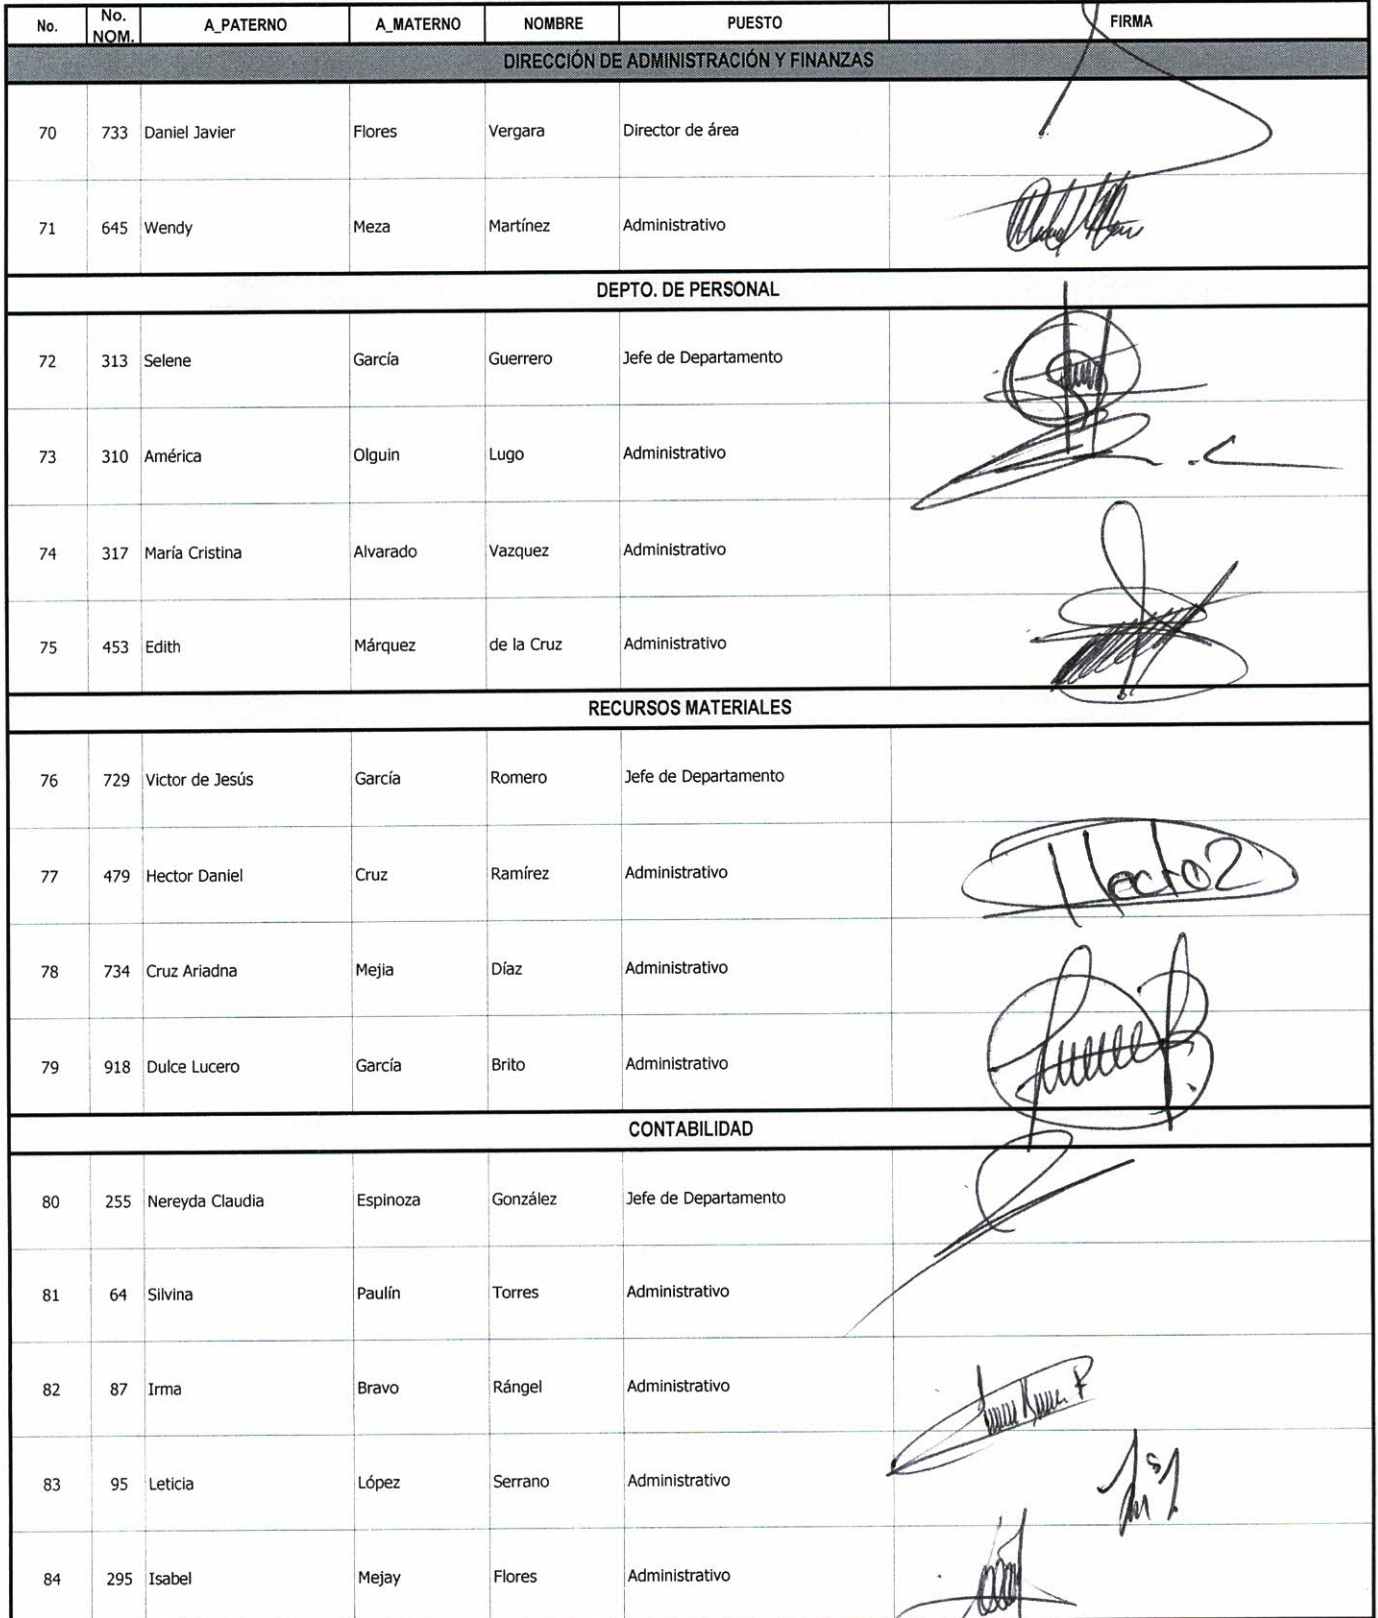 No. No. NOM. A_PATERNO A_MATERNO NOMBRE PUESTO FIRMA
DIRECCIÓN DE ADMINISTRACIÓN Y FINANZAS
70 733 Daniel Javier Flores Vergara Director de área
71 645 Wendy Meza Martínez Administrativo
DEPTO. DE PERSONAL
72 313 Selene García Guerrero Jefe de Departamento
73 310 América Olguin Lugo Administrativo
74 317 María Cristina Alvarado Vazquez Administrativo
75 453 Edith Márquez de la Cruz Administrativo
RECURSOS MATERIALES
76 729 Victor de Jesús García Romero Jefe de Departamento
77 479 Hector Daniel Cruz Ramírez Administrativo
78 734 Cruz Ariadna Mejia Díaz Administrativo
79 918 Dulce Lucero García Brito Administrativo
CONTABILIDAD
80 255 Nereyda Claudia Espinoza González Jefe de Departamento
81 64 Silvina Paulín Torres Administrativo
82 87 Irma Bravo Rángel Administrativo
83 95 Leticia López Serrano Administrativo
84 295 Isabel Mejay Flores Administrativo